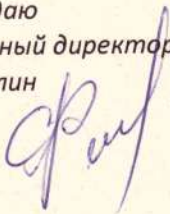 даю
ный директор
лин